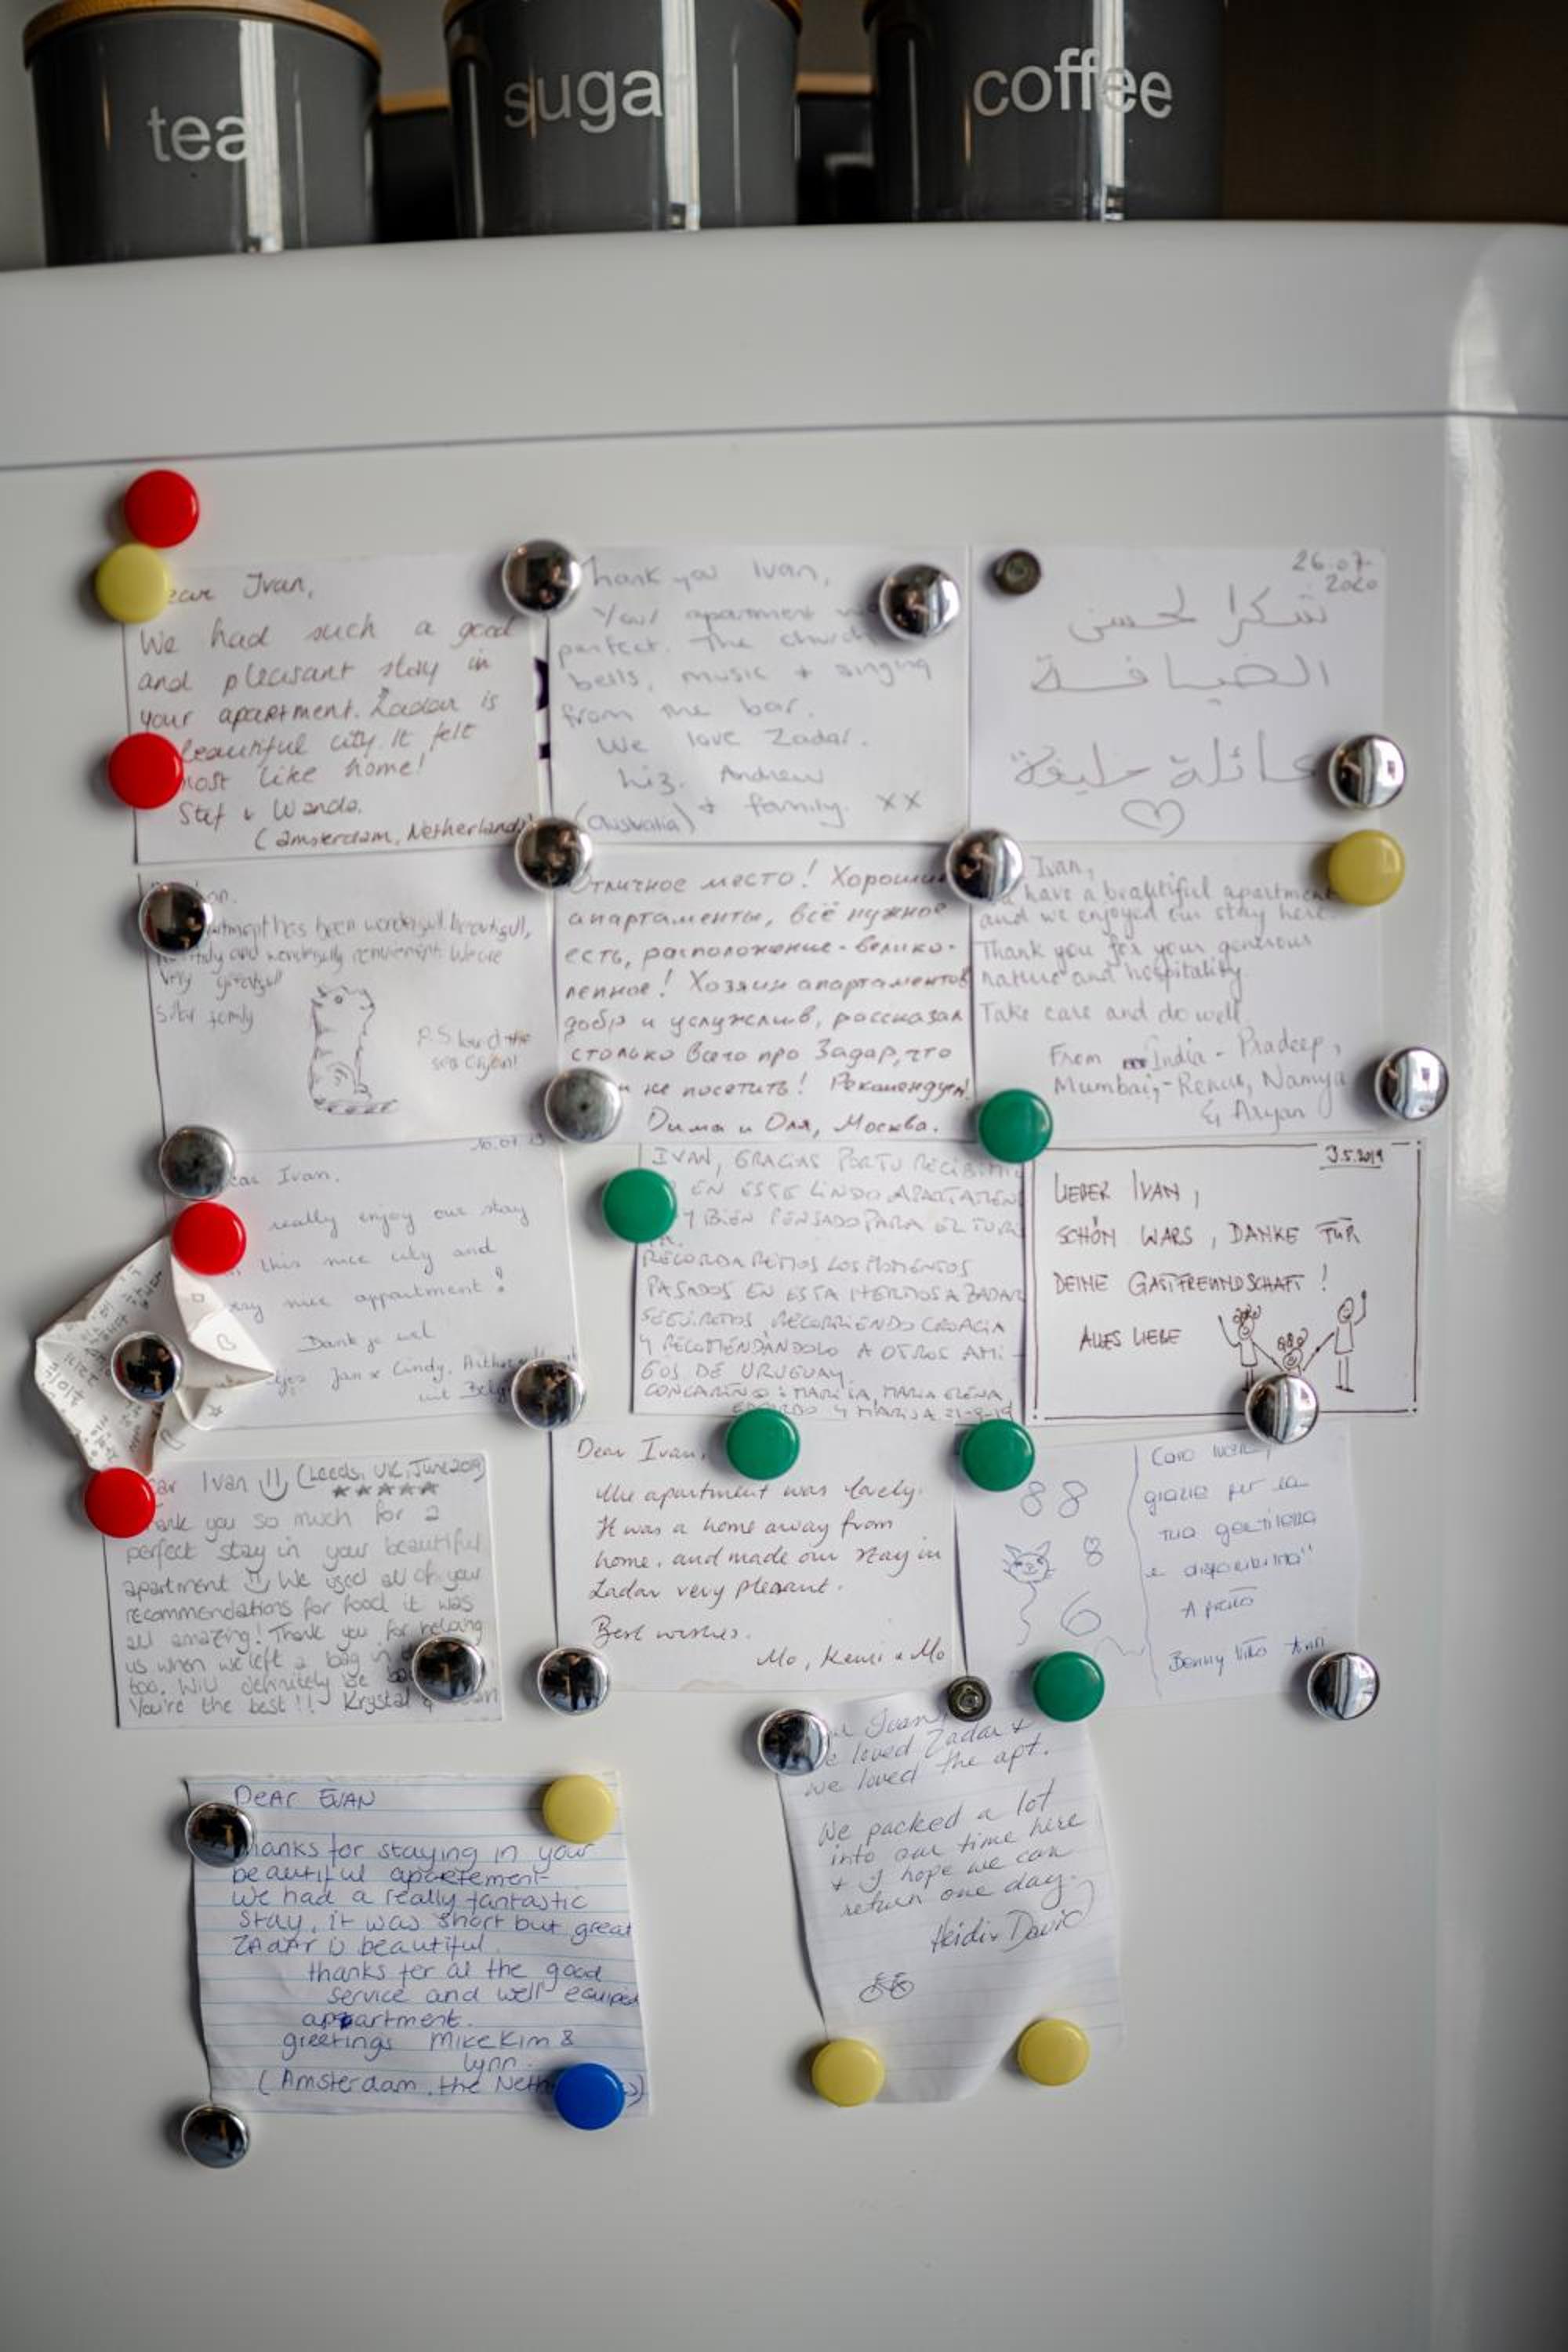 tea
suga
coffee
ear Ivan,
We had such a good
and pleasant stay in
your apartment. Zadar is
beautiful city. It felt
most like home!
Stef & Wanda.
(Amsterdam, Netherlands)
hank you Ivan,
Your apartment
perfect. The church
bells, music + singing
from the bar.
We love Zadar.
Liz, Andrew
(Australia) + family. xx
26.07.
2020
شكرا لحسن
الضيافة
عائلة خليفة
has been wonderful, beautiful,
and wonderfully convenient. We are
very grateful
family
P.S. loved the
sea organ!
Отличное место! Хорошие
апартаменты, всё нужное
есть, расположение - велико-
лепное! Хозяин апартаментов
добр и услужлив, рассказал
столько всего про Задар, что
и не посетить! Рекомендуем!
Дима и Оля, Москва.
Ivan,
have a beautiful apartment
and we enjoyed our stay here.
Thank you for your generous
nature and hospitality.
Take care and do well.
From India - Pradeep,
Mumbai, - Renu, Namya
& Aryan
ear Ivan,
really enjoy our stay
this nice city and
nice appartment!
Dank je wel
Jan x Cindy,
uit
IVAN, GRACIAS POR TU RECIBIMI
EN ESTE LINDO APARTAMEN
Y BIEN PENSADO PARA EL TURI
RECORDAREMOS LOS MOMENTOS
PASADOS EN ESTA HERMOSA ZADAR
SEGUIREMOS RECORRIENDO CROACIA
Y RECOMENDÁNDOLO A OTROS AMI-
GOS DE URUGUAY.
CON CARIÑO: MARIA ELENA,
Y MARIJA 21-9-19
3.5.2019
LIEBER IVAN,
SCHÖN WARS, DANKE FÜR
DEINE GASTFREUNDSCHAFT!
ALLES LIEBE
ear Ivan !! (Leeds, UK, June 2019)
ank you so much for a
perfect stay in your beautiful
apartment We used all of your
recommendations for food it was
all amazing! Thank you for helping
us when we left a bag in
too. Will definitely be
You're the best!! Krystal &
Dear Ivan,
The apartment was lovely.
It was a home away from
home, and made our stay in
Zadar very pleasant.
Best wishes.
Mo, Kemi & Mo
88
8
6
Caro
grazie per la
tua gentilezza
e disponibilità
A presto
Benny Vito
Ivan,
e loved Zadar &
we loved the apt.
We packed a lot
into our time here
+ I hope we can
return one day.
Heidi & David
Dear EVAN
hanks for staying in your
beautiful apartement
we had a really fantastic
stay, it was short but great
ZAdAr is beautiful.
thanks fer al the good
service and well equiped
appartment.
greetings Mike Kim &
Lynn.
(Amsterdam, the Neth